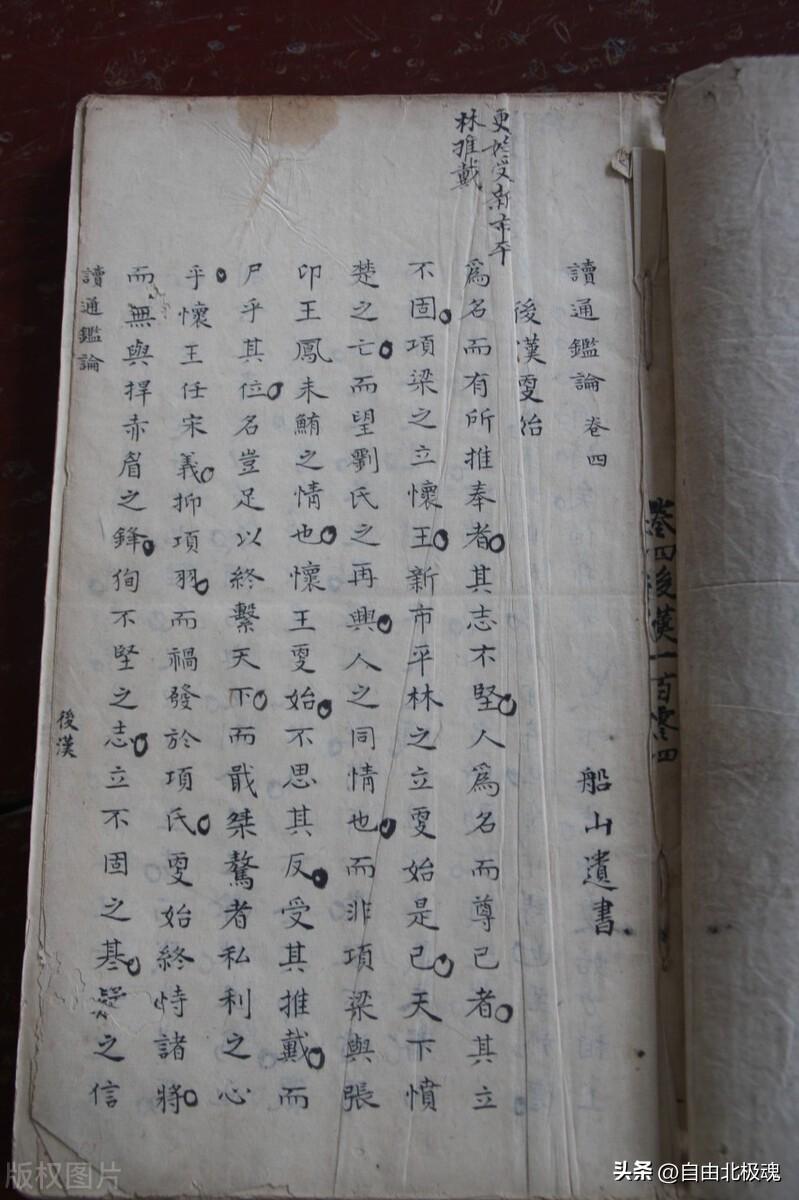 更始受新市平
林推戴
讀通鑑論 卷四
船山遺書
後漢更始
爲名而有所推奉者其志不堅人爲名而尊己者其立
不固項梁之立懷王新市平林之立更始是已天下憤
楚之亡而望劉氏之再興人之同情也而非項梁與張
卬王鳳朱鮪之情也懷王更始不思其反受其推戴而
尸乎其位名豈足以終繫天下而戢桀驁者私利之心
乎懷王任宋義抑項羽而禍發於項氏更始終恃諸將
而無與捍赤眉之鋒徇不堅之志立不固之基疑之信
讀通鑑論
後漢
卷四後漢一百零四
版权图片
头条 @自由北极魂